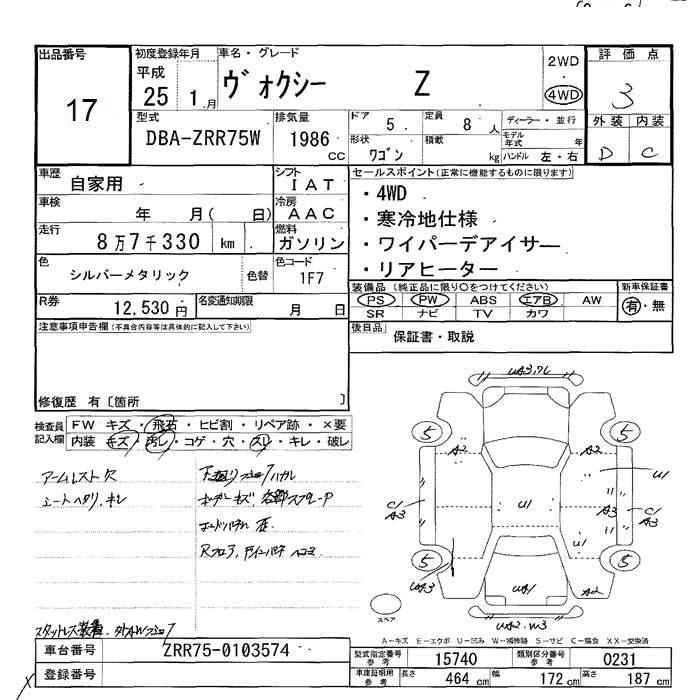 出品番号
17
初度登録年月
平成
25 1.月
車名・グレード
ヴォクシー Z
2WD
・
4WD
評価点
3
外装 内装
D C
型式
DBA-ZRR75W
排気量
1986
CC
ドア
5
定員
8 人
形状
ワゴン
積載
kg
ディーラー・並行
モデル年式 年
ハンドル 左・右
車歴
自家用
シフト
IAT
車検
年 月( 日)
冷房
AAC
走行
8万7千330 km
燃料
ガソリン
色
シルバーメタリック
色替
色コード
1F7
R券
12,530円
名変通知期限
月 日
セールスポイント(正常に機能するものに限ります)
・4WD
・寒冷地仕様
・ワイパーデアイサー
・リアヒーター
装備品(純正品に限り○をつけてください)
PS PW ABS エアB AW
SR ナビ TV カワ
新車保証書
有・無
後日品
保証書・取説
注意事項申告欄(不具合内容等は具体的に記入して下さい)
修復歴 有〔箇所 〕
検査員
記入欄
FW キズ・飛石・ヒビ割・リペア跡・×要
内装 キズ・汚レ・コゲ・穴・スレ・キレ・破レ
アームレスト欠
シートヘタリ、キレ
スペア
A-キズ E-エクボ U-凹み W-補修跡 S-サビ C-腐食 XX-交換済
車台番号
ZRR75-0103574
登録番号
型式指定番号
参考
15740
類別区分番号
参考
0231
車庫証明用
参考
長さ 464 cm
幅 172 cm
高さ 187 cm